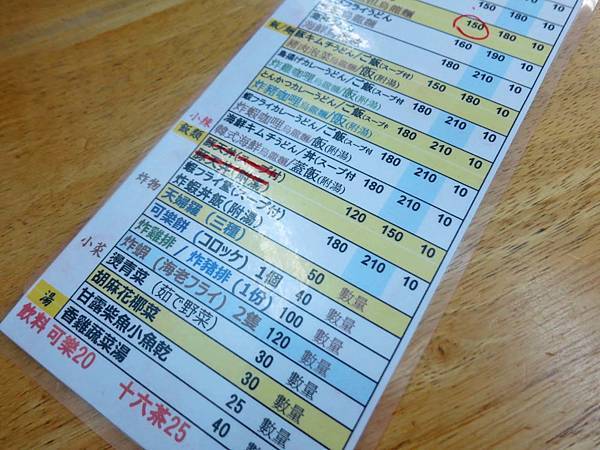 150 180 10
150 180 10
海鮮烏龍麵 160 190 10
飯/麵
豚キムチうどん/ご飯(スープ付
豬肉泡菜烏龍麵/飯(附湯) 180 210 10
鳥唐げカレーうどん/ご飯(スープ付
炸雞咖哩烏龍麵/飯(附湯) 180 210 10
とんかつカレーうどん/ご飯(スープ付
炸豬咖哩烏龍麵/飯(附湯) 180 210 10
蝦フライカレーうどん/ご飯(スープ付
炸蝦咖哩烏龍麵/飯(附湯) 180 210 10
小辣
海鮮キムチうどん/丼(スープ付
韓式海鮮烏龍麵/蓋飯(附湯) 180 210 10
飯類
120 150 10
蝦フライ丼(スープ付)
炸蝦丼飯(附湯) 180 210 10
炸物
天婦羅 (三種) 50 數量
可樂餅 (コロッケ) 1個 40 數量
炸雞排 炸豬排 (1份) 100 數量
炸蝦 (海老フライ) 2隻 120 數量
小菜
燙青菜 (茹で野菜) 30 數量
胡麻花椰菜 30 數量
甘露柴魚小魚乾 25 數量
湯
香雞蔬菜湯 40 數量
飲料 可樂20 十六茶25